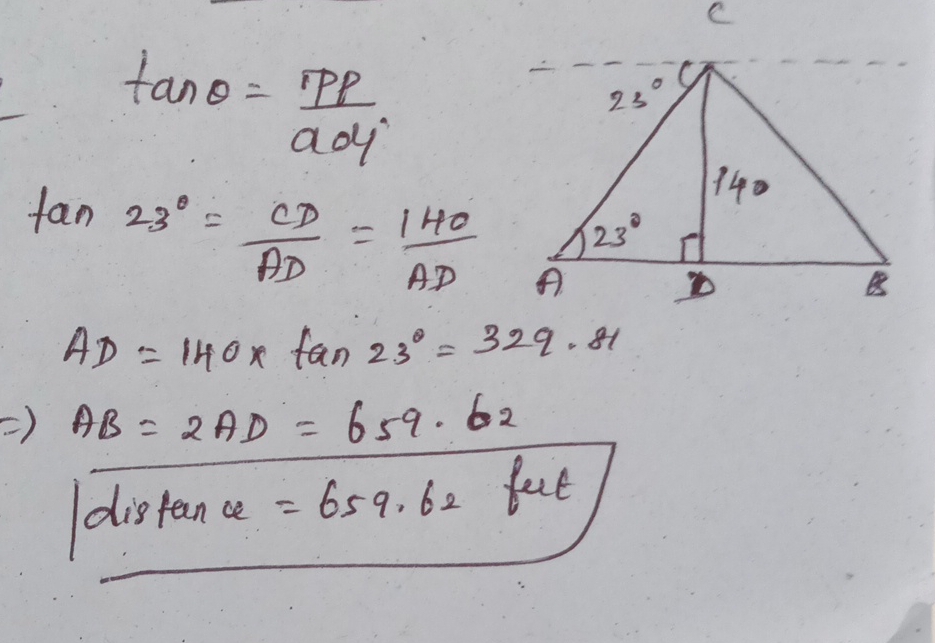 C
tanθ = opp/adj
23°
140
tan 23° = CD/AD = 140/AD
23°
A D B
AD = 140 x tan 23° = 329.81
=) AB = 2AD = 659.62
distance = 659.62 feet